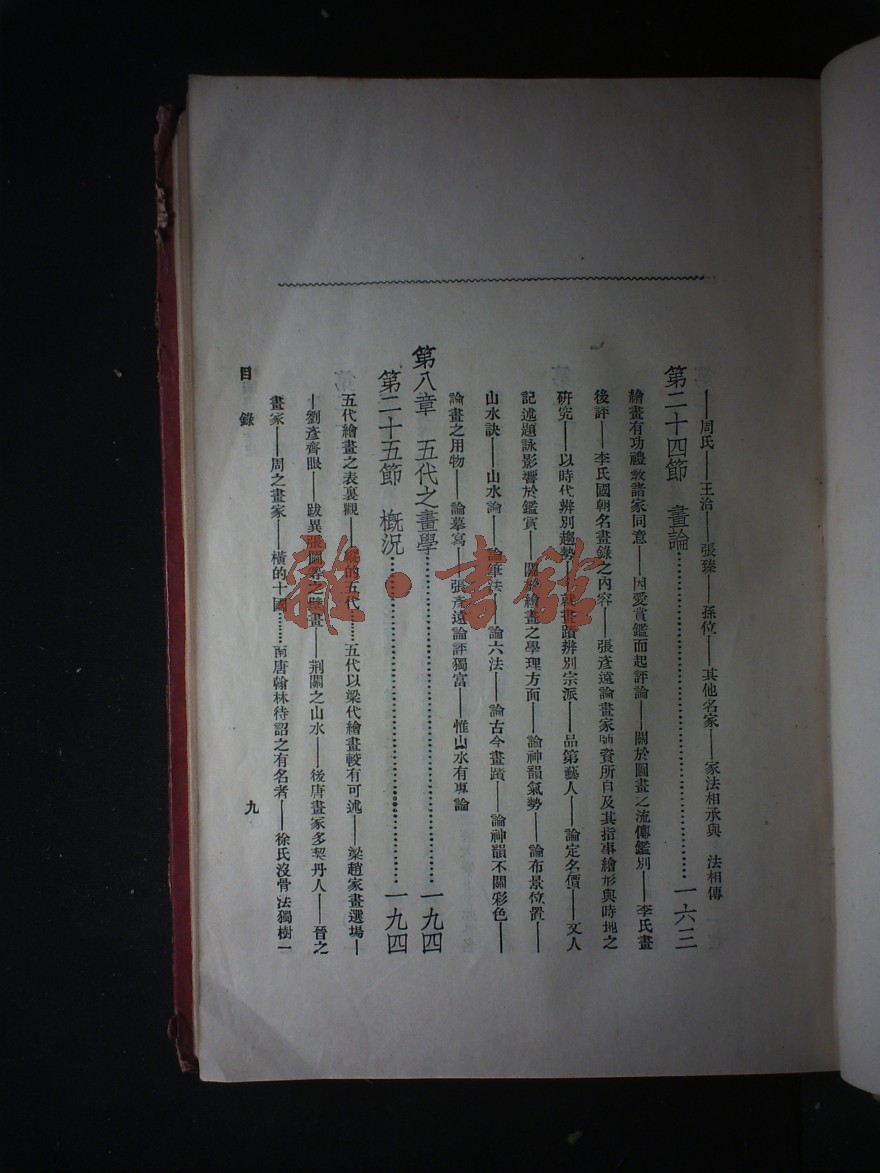 ——周氏——王洽——張臻——孫位——其他名家——家法相承與 法相傳
第二十四節 畫論……一六三
繪畫有功禮敎諸家同意——因愛賞鑑而起評論——關於圖畫之流傳鑑別——李氏畫
後評——李氏國朝名畫錄之內容——張彥遠論畫家師資所自及其指事繪形與時地之
研究——以時代辨別趨勢——就畫蹟辨別宗派——品第藝人——論定名價——文人
記述題詠影響於鑑賞——關於繪畫之學理方面——論神韻氣勢——論布景位置——
山水訣——山水論——論筆法——論六法——論古今畫蹟——論神韻不關彩色——
論畫之用物——論摹寫——張彥遠論評獨富——惟山水有專論
第八章 五代之畫學……一九四
第二十五節 槪況……一九四
五代繪畫之表裏觀——的五代……五代以梁代繪畫較有可述——梁趙家畫選場—
—劉彥齊眼——跋異張圖等之壁畫——荆關之山水——後唐畫家多契丹人——晉之
畫家——周之畫家——橫的十國……南唐翰林待詔之有名者——徐氏沒骨法獨樹一
目錄
九
雜·書館